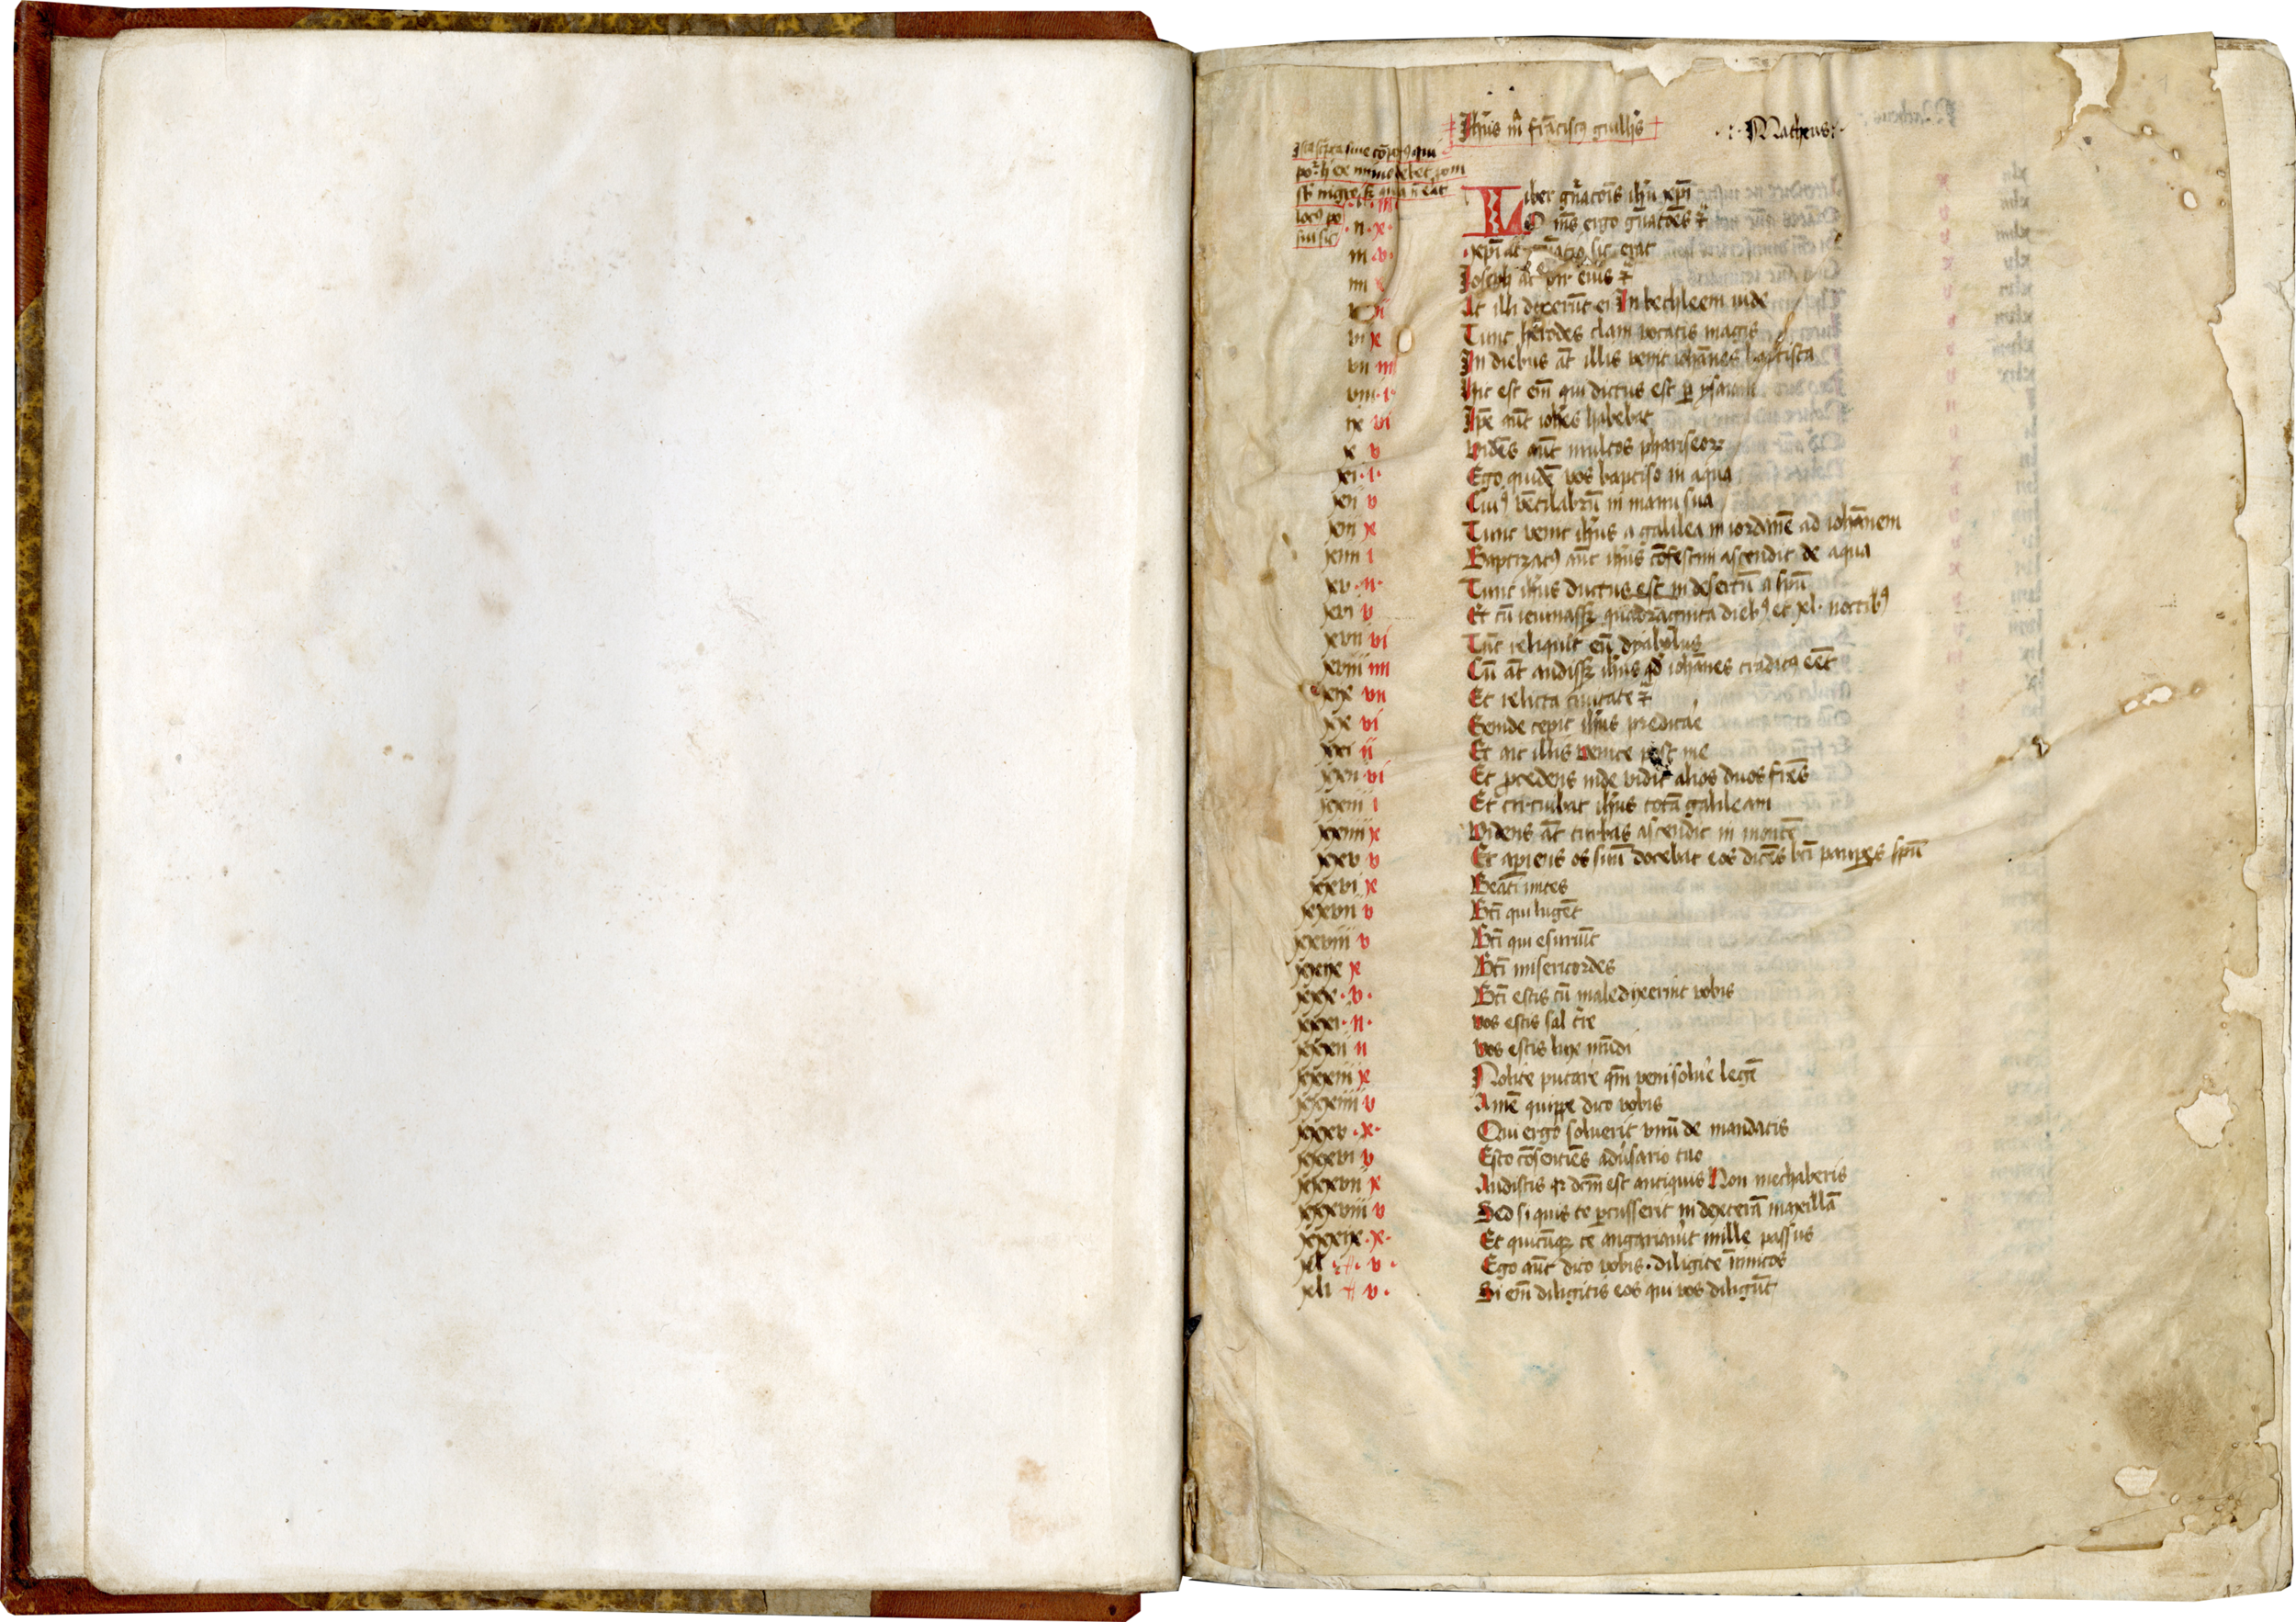 Ihūs m̄ frācisc⁹ guill's
.:. Matheus :.
Liber gn̄atoīs ihū xp̄i
ii · x · Om̄s ergo gn̄atoēs
iii · v · xp̄i at sic erat
iiii Ioseph at vir eius
ii At illi dixerūt ei In bethleem iude
vi x Tunc herodes clam vocatis magis
vii iii In diebus at̄ illis venit iohānes baptista
viii · i · Hic est em̄ qui dictus est ꝑ ysaiam
ix vi Ip̄e aūt ioh̄es habebat
x v vidēs aūt multos phariseoꝝ
xi · i · Ego quidē vos baptiso in aqua
xii v Cui⁹ vētilabrū in manu sua
xiii x Tunc venit ih̄us a galilea in iordanē ad iohānem
xiiii i Baptizat⁹ aūt ih̄us cōfestim ascendit de aqua
xv · ii · Tunc ih̄us ductus est in desertū a sp̄u
xvi v Et cū ieiunassꝫ quadraginta dieb⁹ et xl · noctib⁹
xvii vi Tūc reliquit eū dyabolus
xviii iiii Cū at̄ audissꝫ ih̄us qd̓ iohānes tradit⁹ eēt
xix vii Et relicta ciuitate
xx vi Exinde cepit ih̄us predicae
xxi ii Et ait illis venite post me
xxii vi Et p̄cedens inde vidit alios duos fr̄es
xxiii i Et circuibat ih̄us totā galileam
xxiiii x Videns at̄ turbas ascendit in montē
xxv v Et apiens os suū docebat eos dicēs bt̄i pauꝑes sp̄u
xxvi x Beati mites
xxvii v Bt̄i qui lugēt
xxviii v Bt̄i qui esuriūt
xxix x Bt̄i misericordes
xxx · v · Bt̄i estis cū maledixerint vobis
xxxi · ii · vos estis sal tr̄e
xxxii ii vos estis lux mūdi
xxxiii x Nolite putare qm̄ veni solu'e legē
xxxiiii v Amē quippe dico vobis
xxxv · x · Qui ergo soluerit vnū de mandatis
xxxvi v Esto cōsentiēs adu'sario tuo
xxxvii x Audistis qꝛ dcm̄ est antiquis Non mechaberis
xxxviii v Sed si quis te ꝑcusserit in dexterā maxillā
xxxix · x · Et quicūqꝫ te angariau'it mille passus
xl · v · Ego aūt dico vobis · diligite īimicos
xli v · Si em̄ diligitis eos qui vos diligūt